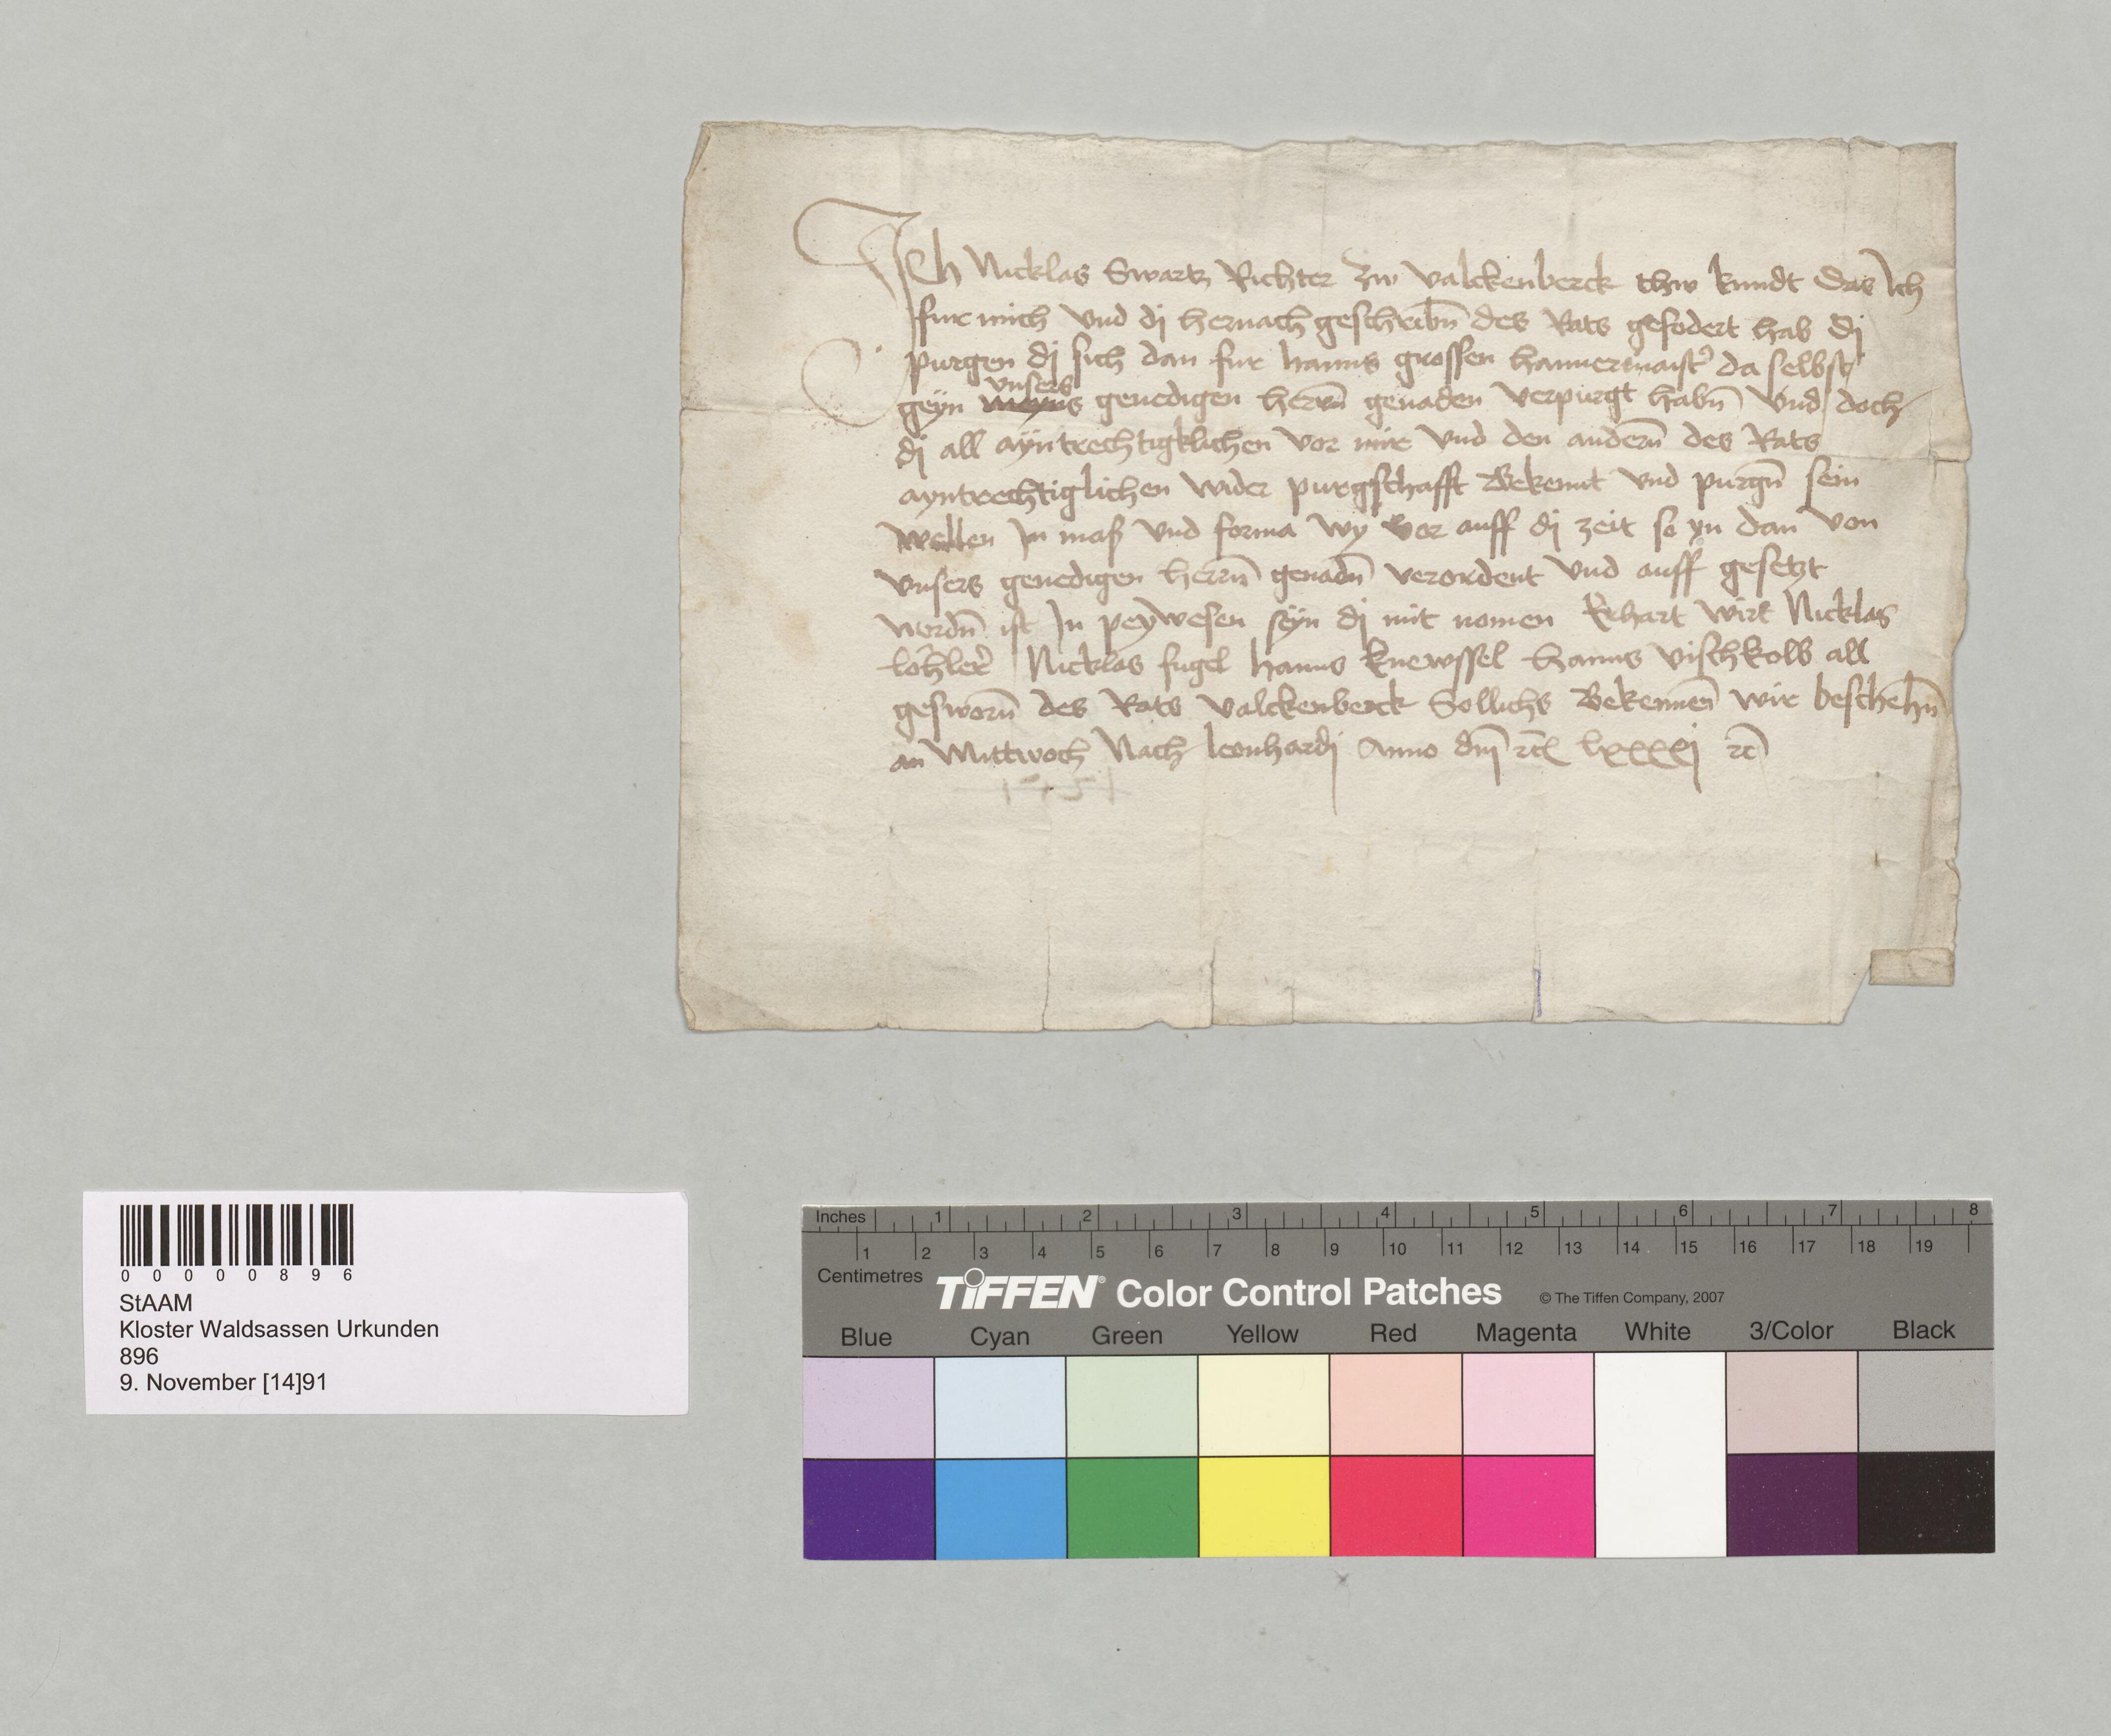 Ich Nicklas Swartz Richter zw valckenberck thw kundt das Ich
fur mich vnd dj hernach geschribn̄ des Rats gefodert hab dj
purgen dj sich dan fur hanns grossen hamermaist' da selbst
vnsers
geyn meyns genedigen herrn̄ genaden verpurgt habn̄ vnd doch
dj all ayntrechtigklichen vor mir vnd den andern̄ des Rats
ayntrechtiglichen wider purgschafft Bekennt vnd purgn̄ sein
wellen In maß vnd forma wy vor auff dj zeit so yn dan von
vnsers genedigen herrn̄ genadn̄ verordent vnd auff gesetzt
wordn̄ ist In peywesen seyn dj mit nomen Erhart wirt Nicklas
Nicklas fugel hanns knewssel hanns vischkolb all
gesworn̄ des Rats valckenberck Sollichs Bekennen̄ wir beschehn̄
an Mittwoch Nach leonhardj Anno dm̄ rc̄ lxxxxj rc̄
0 0 0 0 0 8 9 6
StAAM
Kloster Waldsassen Urkunden
896
9. November [14]91
Inches 1 2 3 4 5 6 7 8
1 2 3 4 5 6 7 8 9 10 11 12 13 14 15 16 17 18 19
Centimetres
TIFFEN® Color Control Patches © The Tiffen Company, 2007
Blue Cyan Green Yellow Red Magenta White 3/Color Black